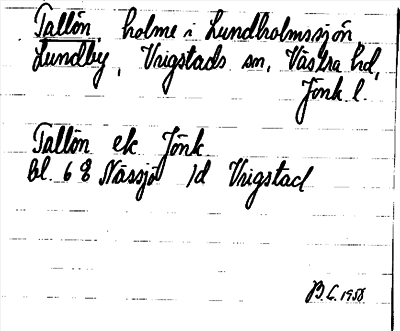 Tallön, holme i Lundholmssjön
Lundby, Vrigstads sn, Västra hd,
Jönk l.
Tallön ek Jönk
bl. 6 8 Nässjö 1d Vrigstad
B.L. 1958